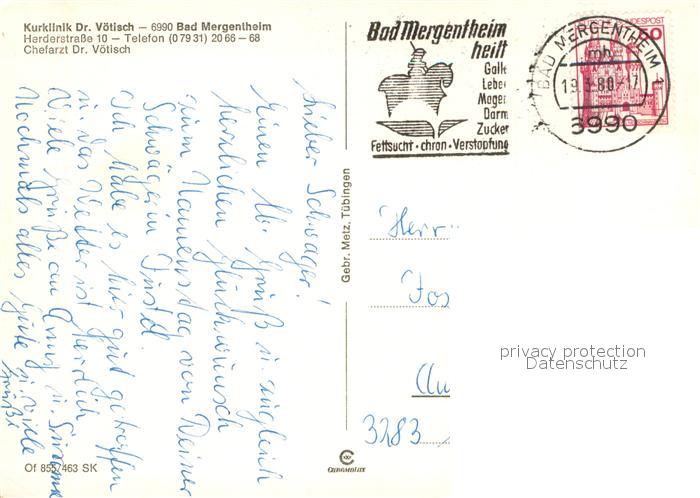 Kurklinik Dr. Vötisch – 6990 Bad Mergentheim
Herderstraße 10 – Telefon (0 79 31) 20 66 – 68
Chefarzt Dr. Vötisch
Lieber Schwager!
Einen lb. Gruß u. zugleich
herzlichen Glückwunsch
zum Namenstag von Deiner
Schwägerin Justel.
Ich habe es hier gut getroffen
u. das Wetter ist herrlich
Viele Grüße an Anny u.
Nochmals alles Gute u. viele
Grüße
Of 855/463 SK
Gebr. Metz, Tübingen
Bad Mergentheim
heilt
Galle
Leber
Magen
Darm
Zucker
Fettsucht · chron · Verstopfung
BUNDESPOST
BAD MERGENTHEIM 1
mh
19.3.80.-17
6990
Herr
Jos
3283
CHROMOLUX
privacy protection
Datenschutz